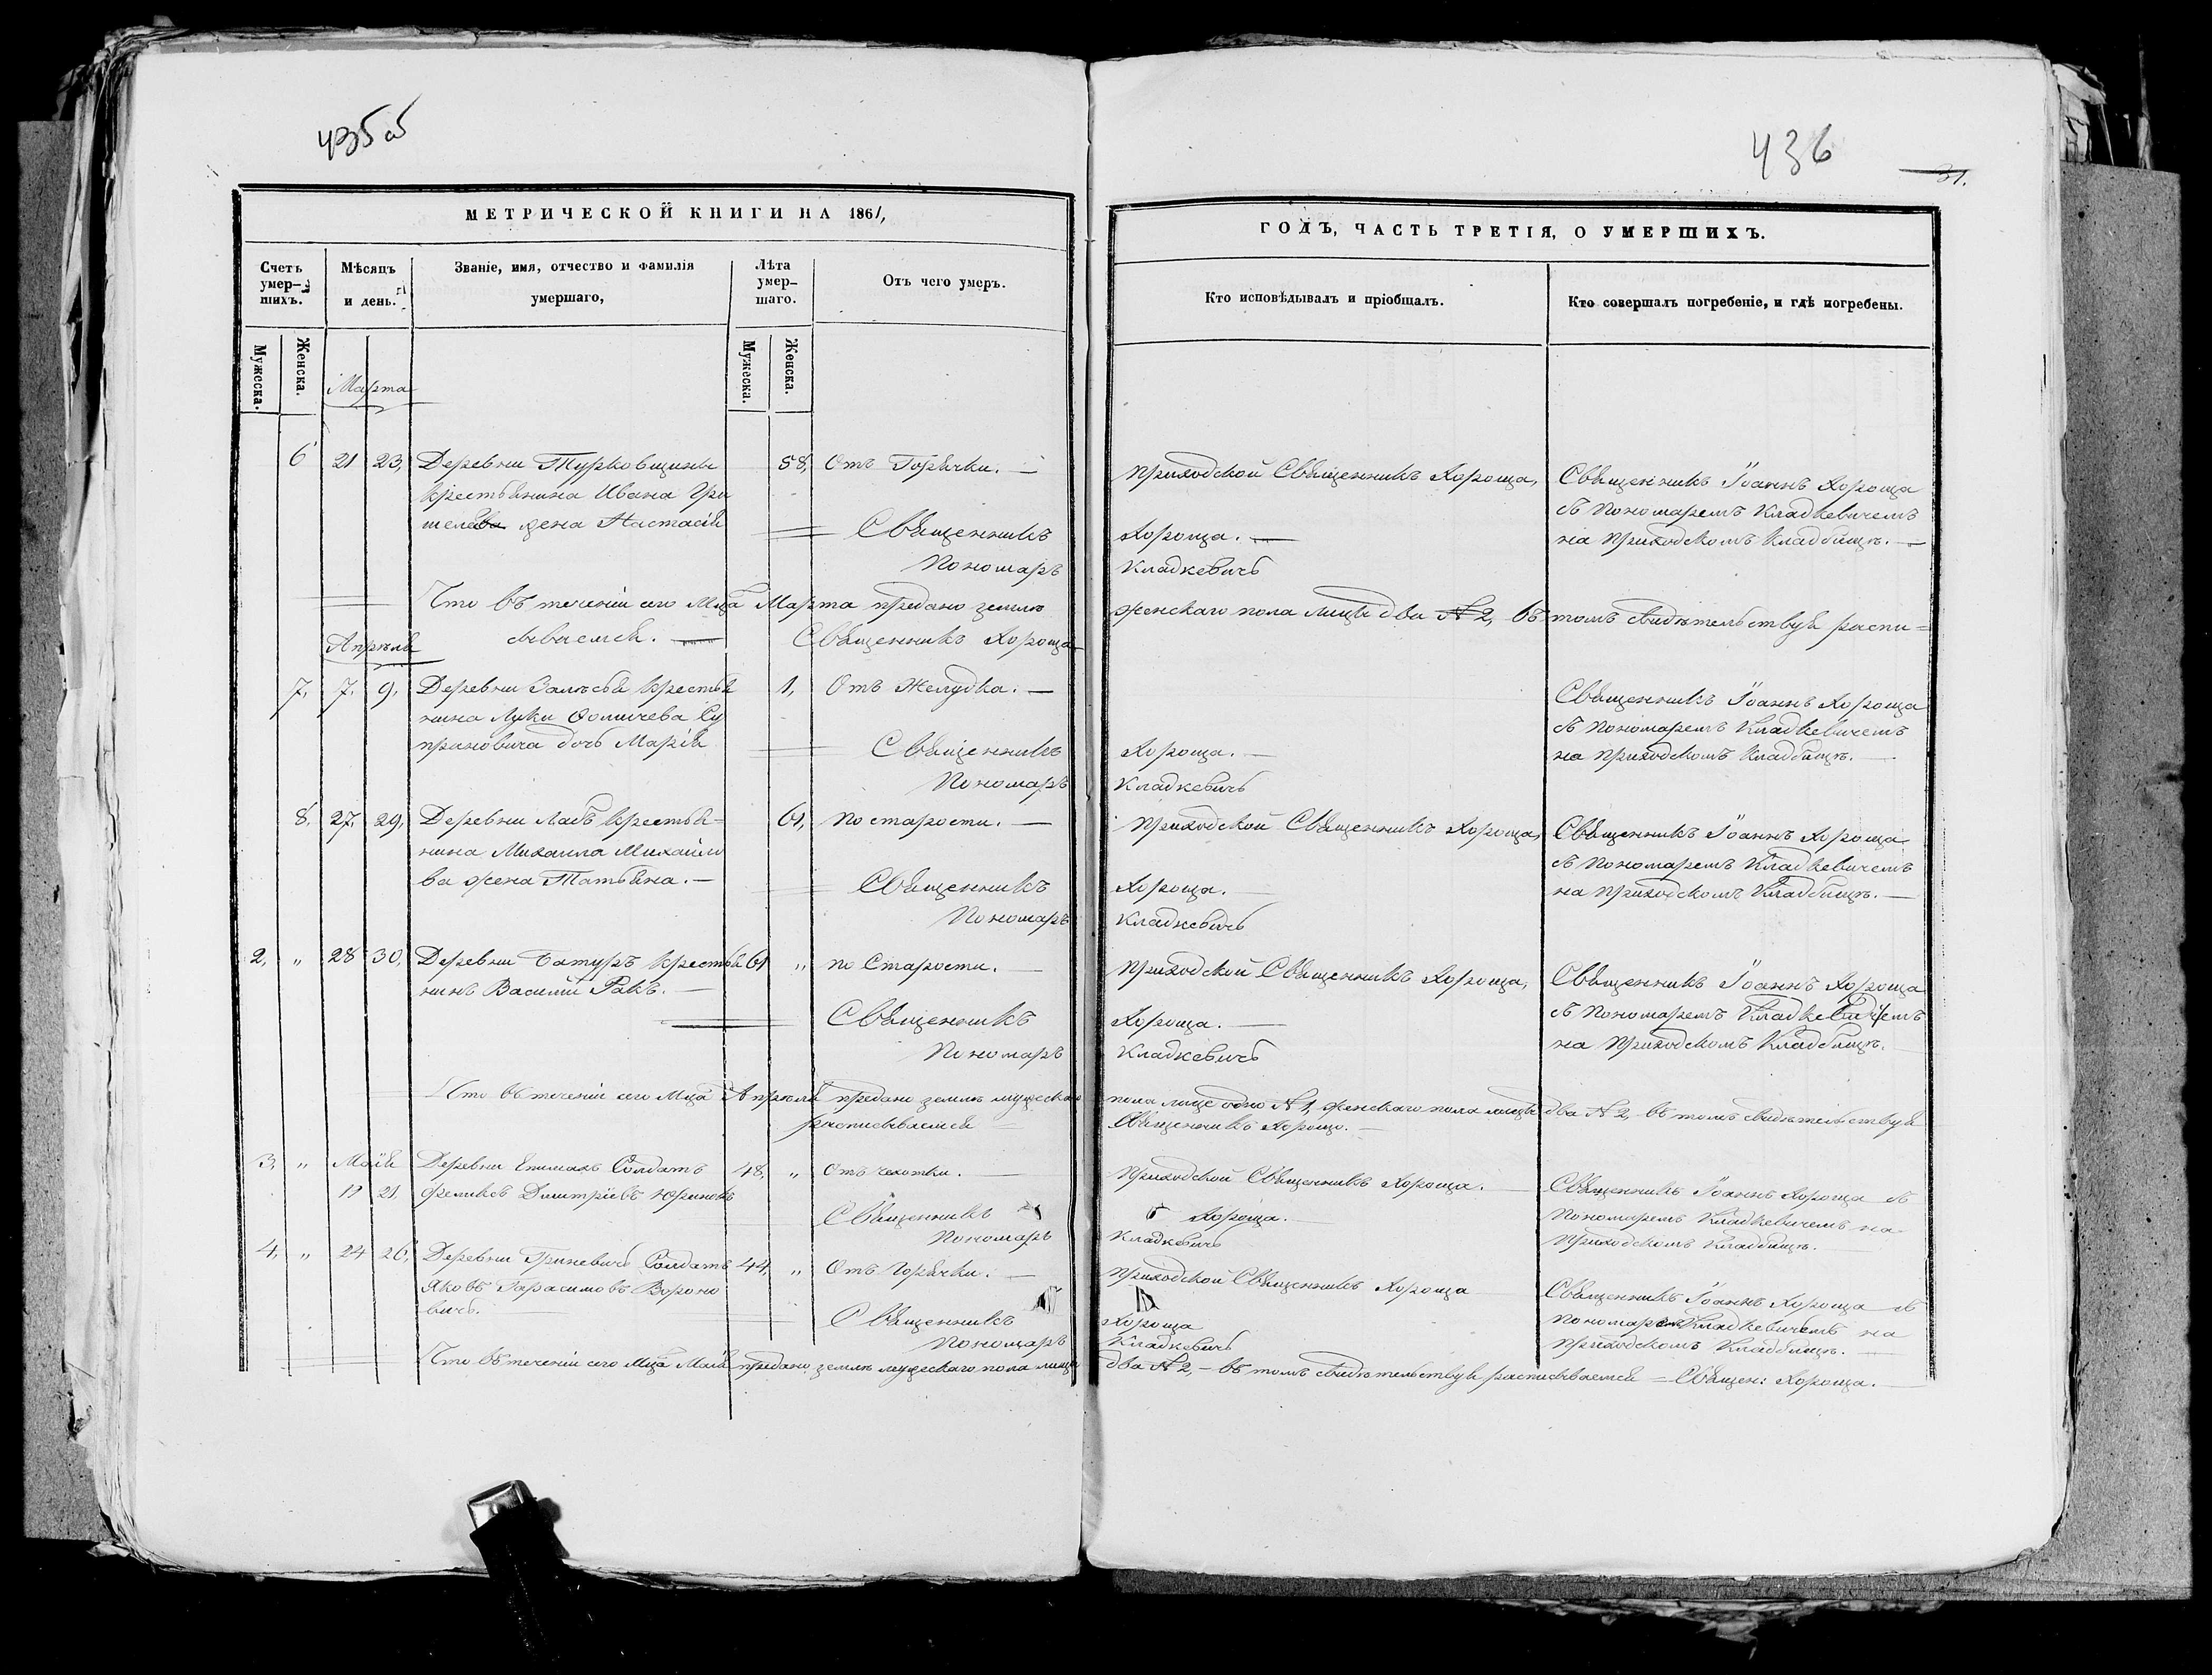 435 об
МЕТРИЧЕСКОЙ КНИГИ НА 1861,
Счетъ умер-шихъ.
Мѣсяцъ и день.
Званіе, имя, отчество и фамилія умершаго,
Лѣта умер-шаго.
Отъ чего умеръ.
Мужеска.
Женска.
Мужеска.
Женска.
Марта
6 21 23, Деревни Турковщины 58, Отъ Горячки. —
крестьянина Ивана Гри
жена Настасія
Священникъ
Пономарь
Что въ теченіи сего Мца Марта предано землѣ
Апрѣля
сываемся. — Священникъ Хороща
7, 7, 9, Деревни Залѣсья крестья 1, Отъ Желудка. —
нина Луки Фомичева Су
приновича дочь Марія
Священникъ
Пономарь
8, 27, 29, Деревни Лабъ крестья- 61, по старости. —
нина Михаила Михайло
ва жена Татьяна. —
Священникъ
Пономарь
2, „ 28 30, Деревни Батуръ крестья 61 „ по Старости. —
нинъ Василій Ракъ. —
Священникъ
Пономарь
Что въ теченіи сего Мца Апрѣля предано землѣ мужескаго
росписываемся
3, „ Маія Деревни Солдатъ 48, „ Отъ чахотки. —
19 21, Феликсъ Димитріевъ
Священникъ
Пономарь
4, „ 24 26, Деревни Гриневичъ Солдатъ 44, „ Отъ Горячки. —
Яковъ Гарасимовъ Вороно
вичъ. —
Священникъ
Пономарь
Что въ теченіи сего Мца Маія предано землѣ мужескаго пола лицъ
436
31.
ГОДЪ, ЧАСТЬ ТРЕТІЯ, О УМЕРШИХЪ.
Кто исповѣдывалъ и пріобщалъ.
Кто совершалъ погребеніе, и гдѣ погребены.
Приходской Священникъ Хороща, Священникъ Іоаннъ Хороща
съ Пономаремъ Кладкевичемъ
Хороща. — на Приходскомъ Кладбищѣ. —
Кладкевичъ
женскаго пола лицъ два № 2, въ томъ свидѣтельствуя распи=
Священникъ Іоаннъ Хороща
съ Пономаремъ Кладкевичемъ
Хороща. — на Приходскомъ Кладбищѣ. —
Кладкевичъ
Приходской Священникъ Хороща, Священникъ Іоаннъ Хороща
съ Пономаремъ Кладкевичемъ
Хороща. — на Приходскомъ Кладбищѣ. —
Кладкевичъ
Приходской Священникъ Хороща, Священникъ Іоаннъ Хороща
Хороща. — съ Пономаремъ Кладкевичемъ
Кладкевичъ на Приходскомъ Кладбищѣ.
пола лице одно № 1, женскаго пола лицъ два № 2, въ томъ свидѣтельствуя
Священникъ Хороща. —
Приходской Священникъ Хороща. Священникъ Іоаннъ Хороща съ
Хороща. — Пономаремъ Кладкевичемъ на
Кладкевичъ Приходскомъ Кладбищѣ. —
Приходской Священникъ Хороща Священникъ Іоаннъ Хороща съ
Хороща Пономаремъ Кладкевичемъ на
Кладкевичъ Приходскомъ Кладбищѣ. —
два № 2, — въ томъ свидѣтельствуя расписываемся = Священ: Хороща. —